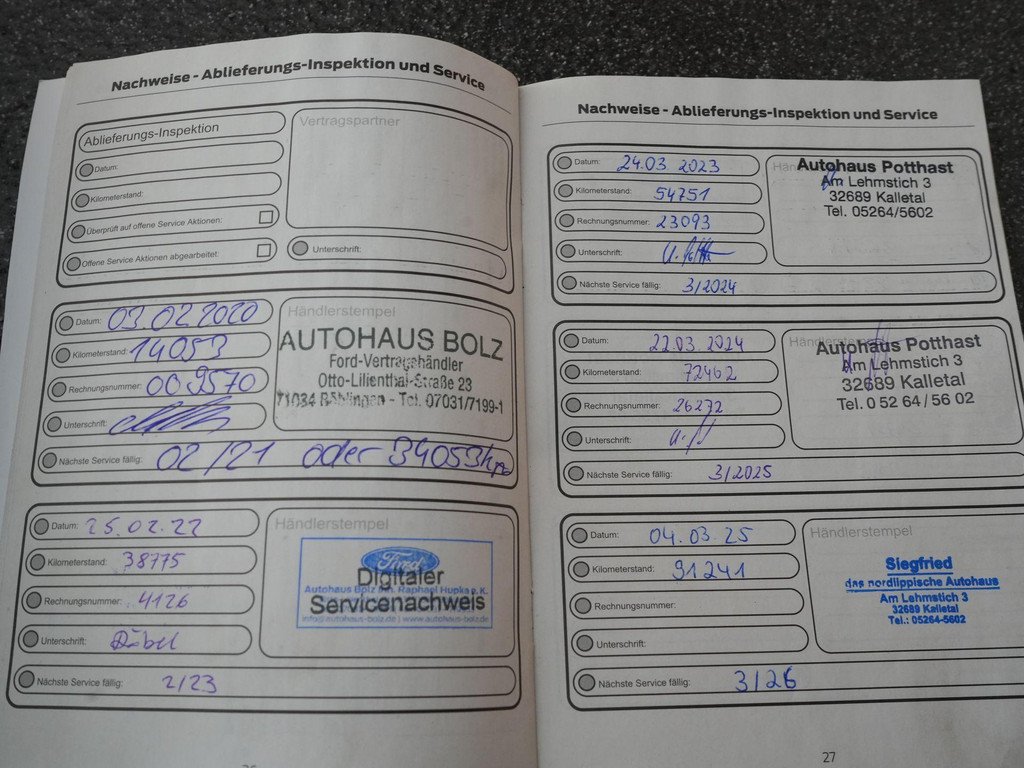 Nachweise - Ablieferungs-Inspektion und Service
Ablieferungs-Inspektion
Datum:
Kilometerstand:
Überprüft auf offene Service Aktionen:
Offene Service Aktionen abgearbeitet:
Vertragspartner
Unterschrift:
Datum: 03.02.2020
Kilometerstand: 14053
Rechnungsnummer: 009570
Unterschrift:
Nächste Service fällig: 02/21 oder 34053km
Händlerstempel
AUTOHAUS BOLZ
Ford-Vertragshändler
Otto-Lilienthal-Straße 23
71034 Böblingen - Tel. 07031/7199-1
Datum: 25.02.22
Kilometerstand: 38775
Rechnungsnummer: 4126
Unterschrift:
Nächste Service fällig: 2/23
Händlerstempel
Ford
Digitaler
Autohaus Bolz Inh. Raphael Hupka e.K.
Servicenachweis
info@autohaus-bolz.de | www.autohaus-bolz.de
Nachweise - Ablieferungs-Inspektion und Service
Datum: 24.03 2023
Kilometerstand: 54751
Rechnungsnummer: 23093
Unterschrift:
Nächste Service fällig: 3/2024
Autohaus Potthast
Am Lehmstich 3
32689 Kalletal
Tel. 05264/5602
Datum: 22.03.2024
Kilometerstand: 72462
Rechnungsnummer: 26272
Unterschrift:
Nächste Service fällig: 3/2025
Autohaus Potthast
Am Lehmstich 3
32689 Kalletal
Tel. 0 52 64 / 56 02
Datum: 04.03.25
Kilometerstand: 91241
Rechnungsnummer:
Unterschrift:
Nächste Service fällig: 3/26
Händlerstempel
Siegfried
das nordlippische Autohaus
Am Lehmstich 3
32689 Kalletal
Tel.: 05264-5602
27